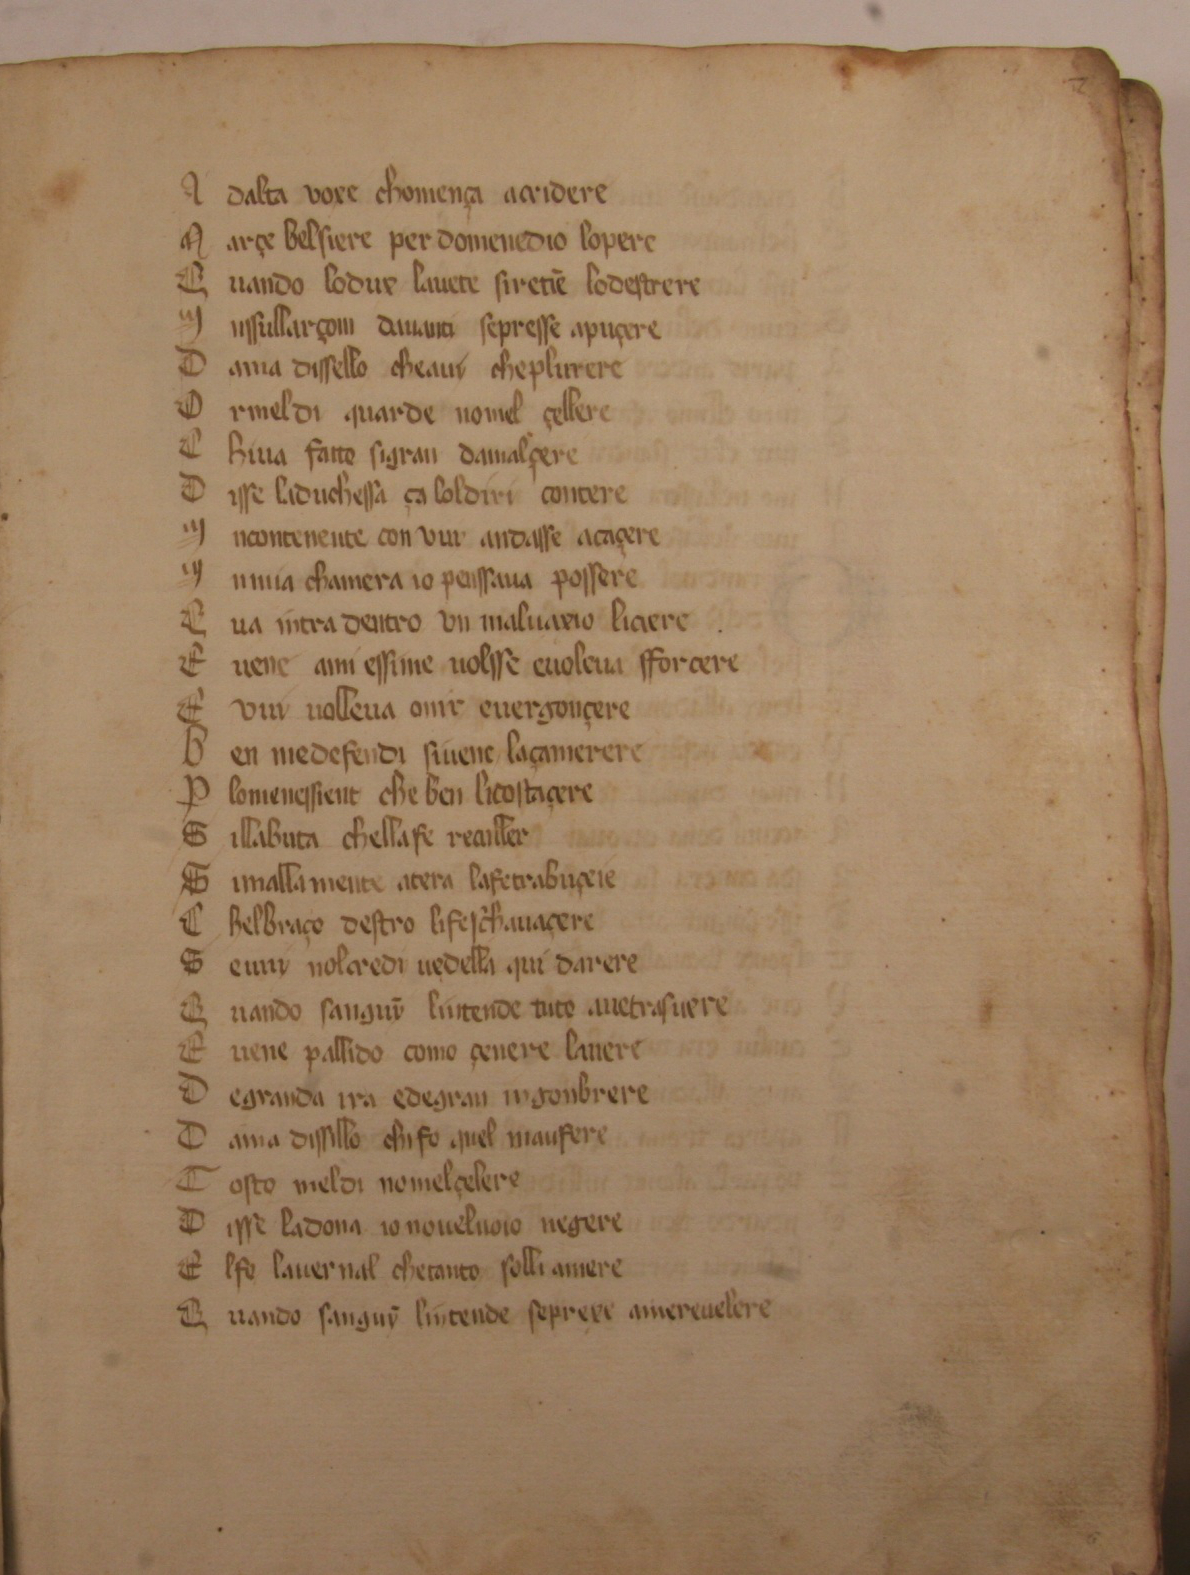 A dalta voxe chomença acridere
N arçe belsiere per domenedio lopere
Q uando lodux lauete siretiē lodestrere
I nssullarçom dauanti sepresse apuçere
D ama dissello cheauì cheplurere
O rmeldi quarde nomel çellere
C hiua fatto sigran damalçere
D isse laduchessa ça loldiri contere
I ncontenente con vui andasse acaçere
I nmia chamera io penssaua possere
E ua intra dentro vn maluaxio licere
E uene ami essime uolsse euoleua sforcere
E vui uolleua onir euergonçere
B en medefendi siuene laçamerere
P lomenessient che ben licostaçere
S illabuta chellafe reculler
S imalla mente atera lafetrabuçeie
C helbraço destro lifeschauaçere
S euuy nolcredi uedella qui darere
Q uando sanguȳ lintende tuto auetrasuere
E uene pallido como çenere lauere
D egranda ira edegran ingonbrere
D ama dissillo chifo quel maufere
T osto meldi nomelçelere
D isse ladona io nouelnoio negere
E lfo lauernal chetanto solli amere
Q uando sanguȳ lintende seprexe amereuelere